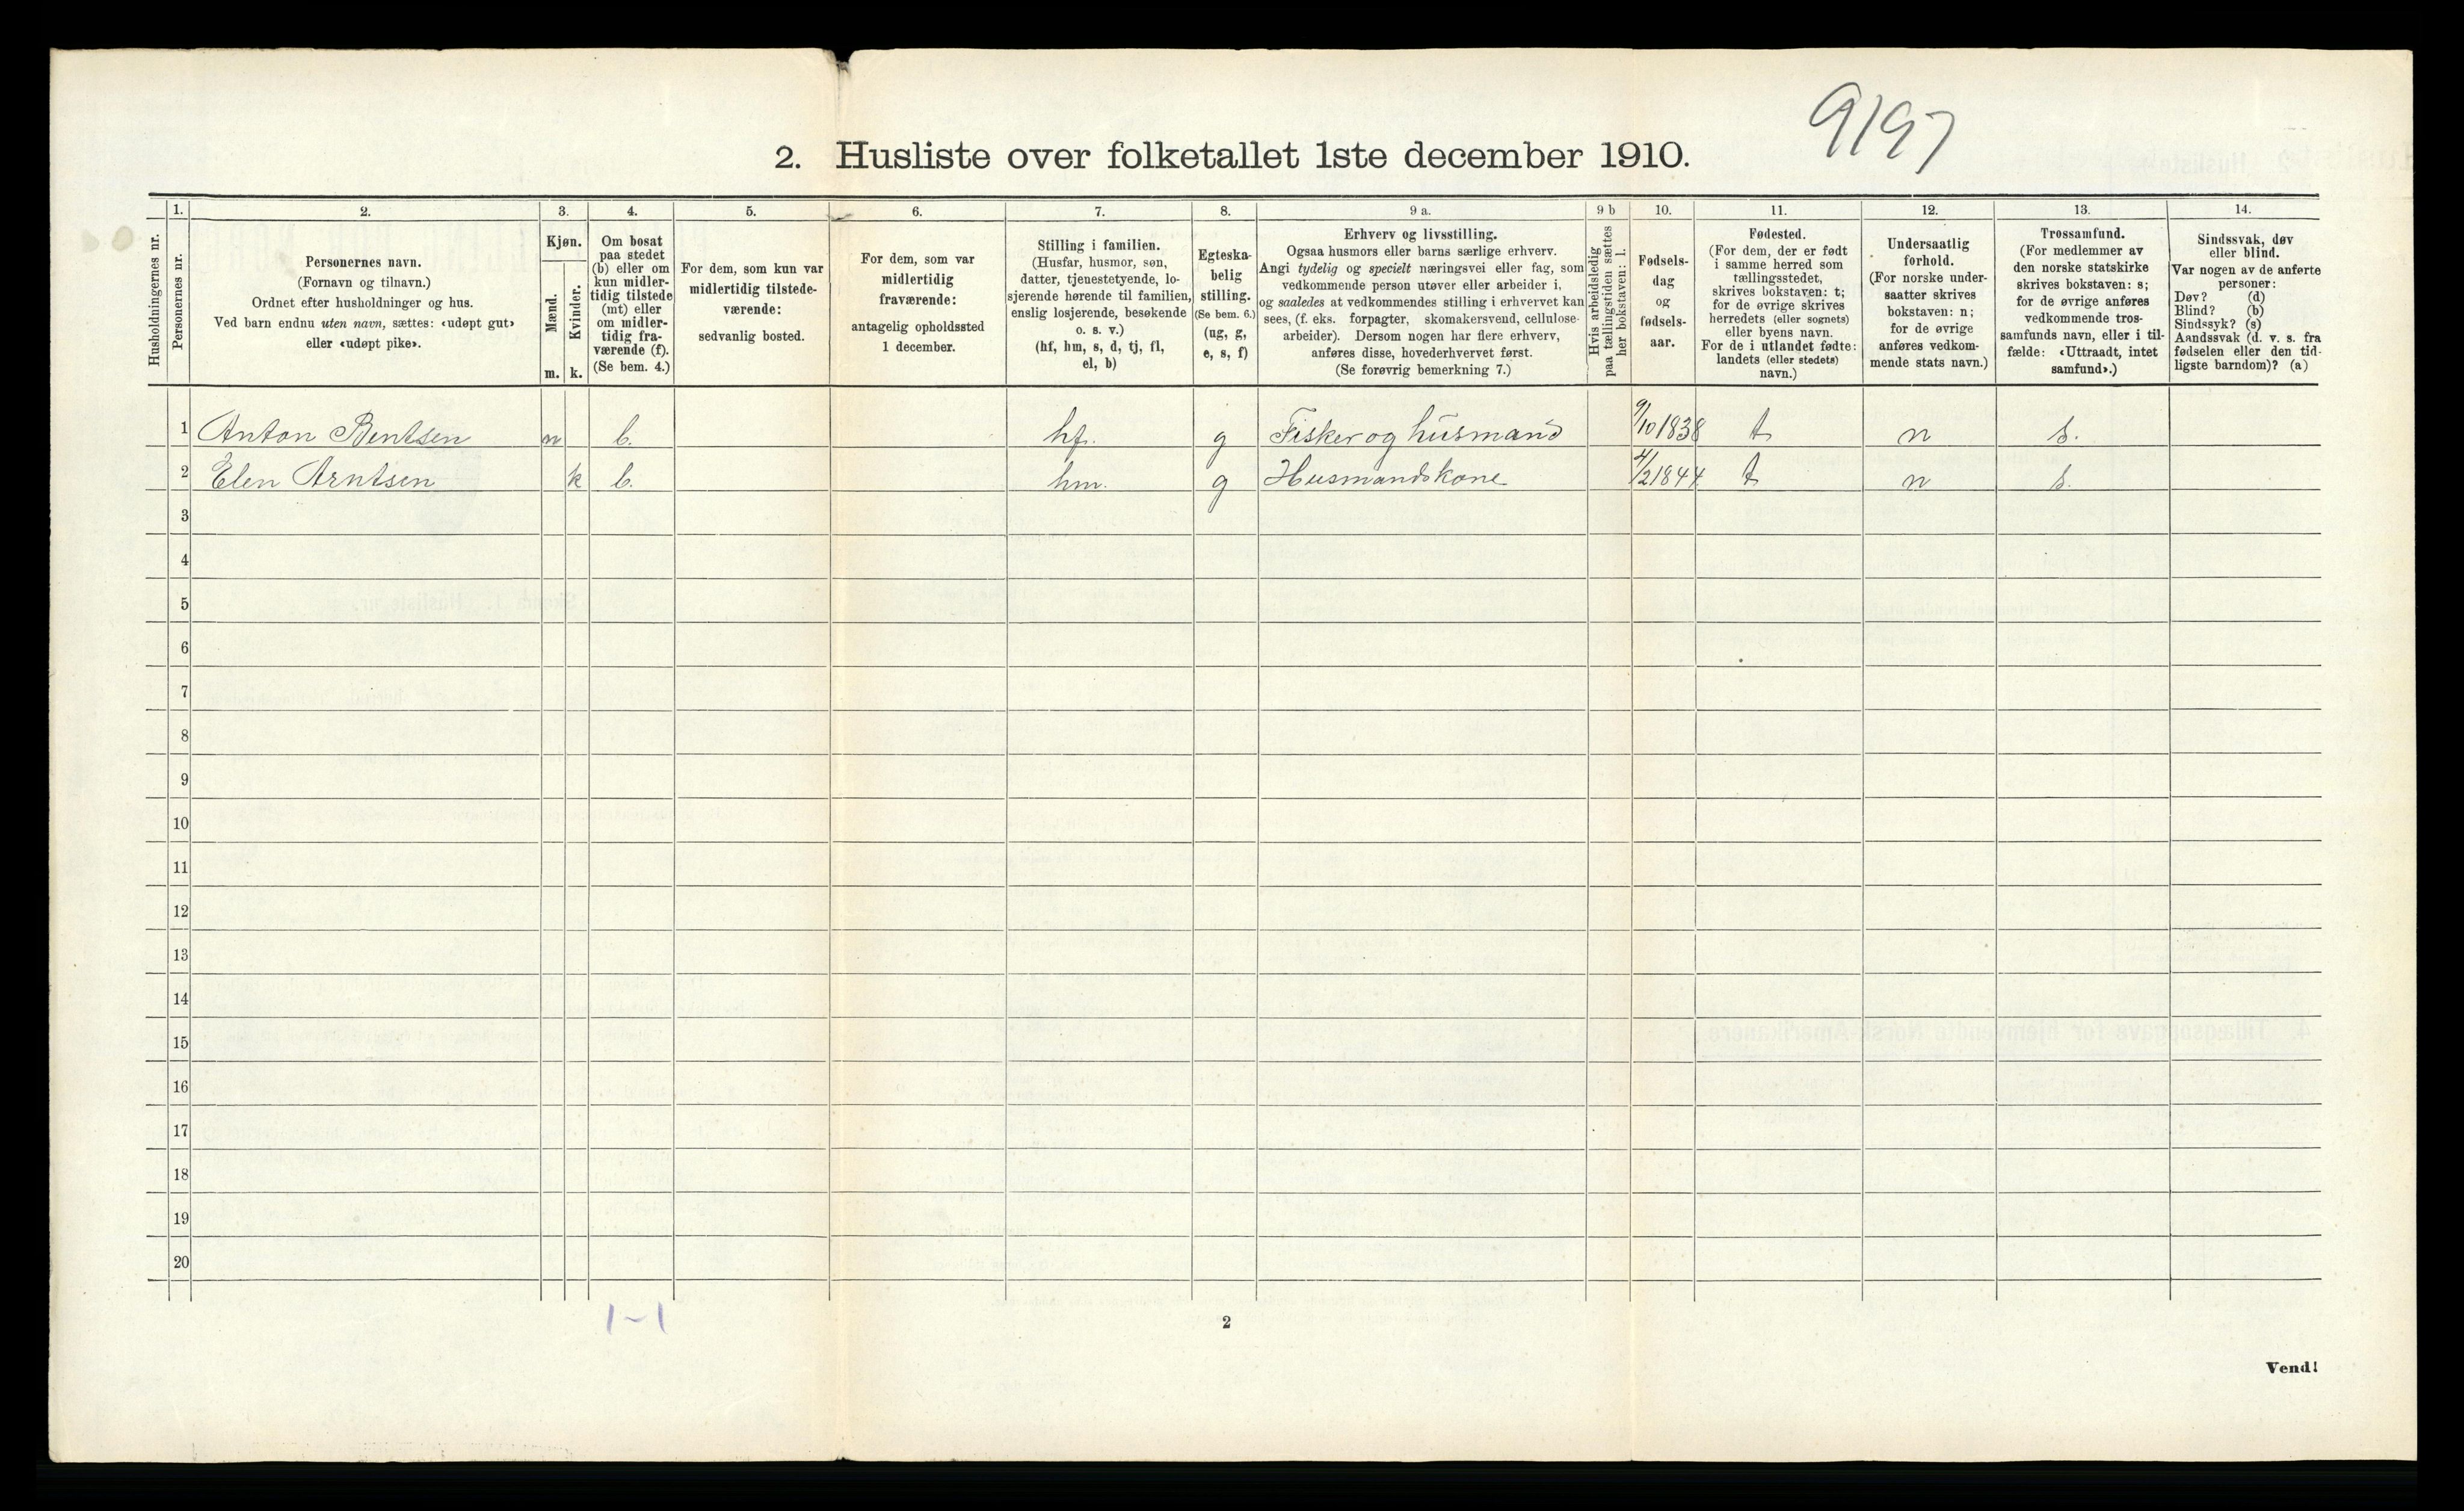 9197
2. Husliste over folketallet 1ste december 1910.
Husholdningernes nr.
1.
Personernes nr.
2.
Personernes navn.
(Fornavn og tilnavn.)
Ordnet efter husholdninger og hus.
Ved barn endnu uten navn, sættes: «udøpt gut»
eller «udøpt pike».
3.
Kjøn.
Mænd.
Kvinder.
m. k.
4.
Om bosat
paa stedet
(b) eller om
kun midler-
tidig tilstede
(mt) eller
om midler-
tidig fra-
værende (f).
(Se bem. 4.)
5.
For dem, som kun var
midlertidig tilstede-
værende:
sedvanlig bosted.
6.
For dem, som var
midlertidig
fraværende:
antagelig opholdssted
1 december.
7.
Stilling i familien.
(Husfar, husmor, søn,
datter, tjenestetyende, lo-
sjerende hørende til familien,
enslig losjerende, besøkende
o. s. v.)
(hf, hm, s, d, tj, fl,
el, b)
8.
Egteska-
belig
stilling.
(Se bem. 6.)
(ug, g,
e, s, f)
9 a.
Erhverv og livsstilling.
Ogsaa husmors eller barns særlige erhverv.
Angi tydelig og specielt næringsvei eller fag, som
vedkommende person utøver eller arbeider i,
og saaledes at vedkommendes stilling i erhvervet kan
sees, (f. eks. forpagter, skomakersvend, cellulose-
arbeider). Dersom nogen har flere erhverv,
anføres disse, hovederhvervet først.
(Se forøvrig bemerkning 7.)
9 b
Hvis arbeidsledig
paa tællingstiden sættes
her bokstaven: l.
10.
Fødsels-
dag
og
fødsels-
aar.
11.
Fødested.
(For dem, der er født
i samme herred som
tællingsstedet,
skrives bokstaven: t;
for de øvrige skrives
herredets (eller sognets)
eller byens navn.
For de i utlandet fødte:
landets (eller stedets)
navn.)
12.
Undersaatlig
forhold.
(For norske under-
saatter skrives
bokstaven: n;
for de øvrige
anføres vedkom-
mende stats navn.)
13.
Trossamfund.
(For medlemmer av
den norske statskirke
skrives bokstaven: s;
for de øvrige anføres
vedkommende tros-
samfunds navn, eller i til-
fælde: «Uttraadt, intet
samfund».)
14.
Sindssvak, døv
eller blind.
Var nogen av de anførte
personer:
Døv? (d)
Blind? (b)
Sindssyk? (s)
Aandssvak (d. v. s. fra
fødselen eller den tid-
ligste barndom)? (a)
1 Anton Bentsen m b. hf. g Fisker og husmand 9/10 1838 t n s.
2 Elen Arntsen k b. hm. g Husmandskone 4/2 1844 t n s.
3
4
5
6
7
8
9
10
11
12
13
14
15
16
17
18
19
20
1-1
2
Vend!